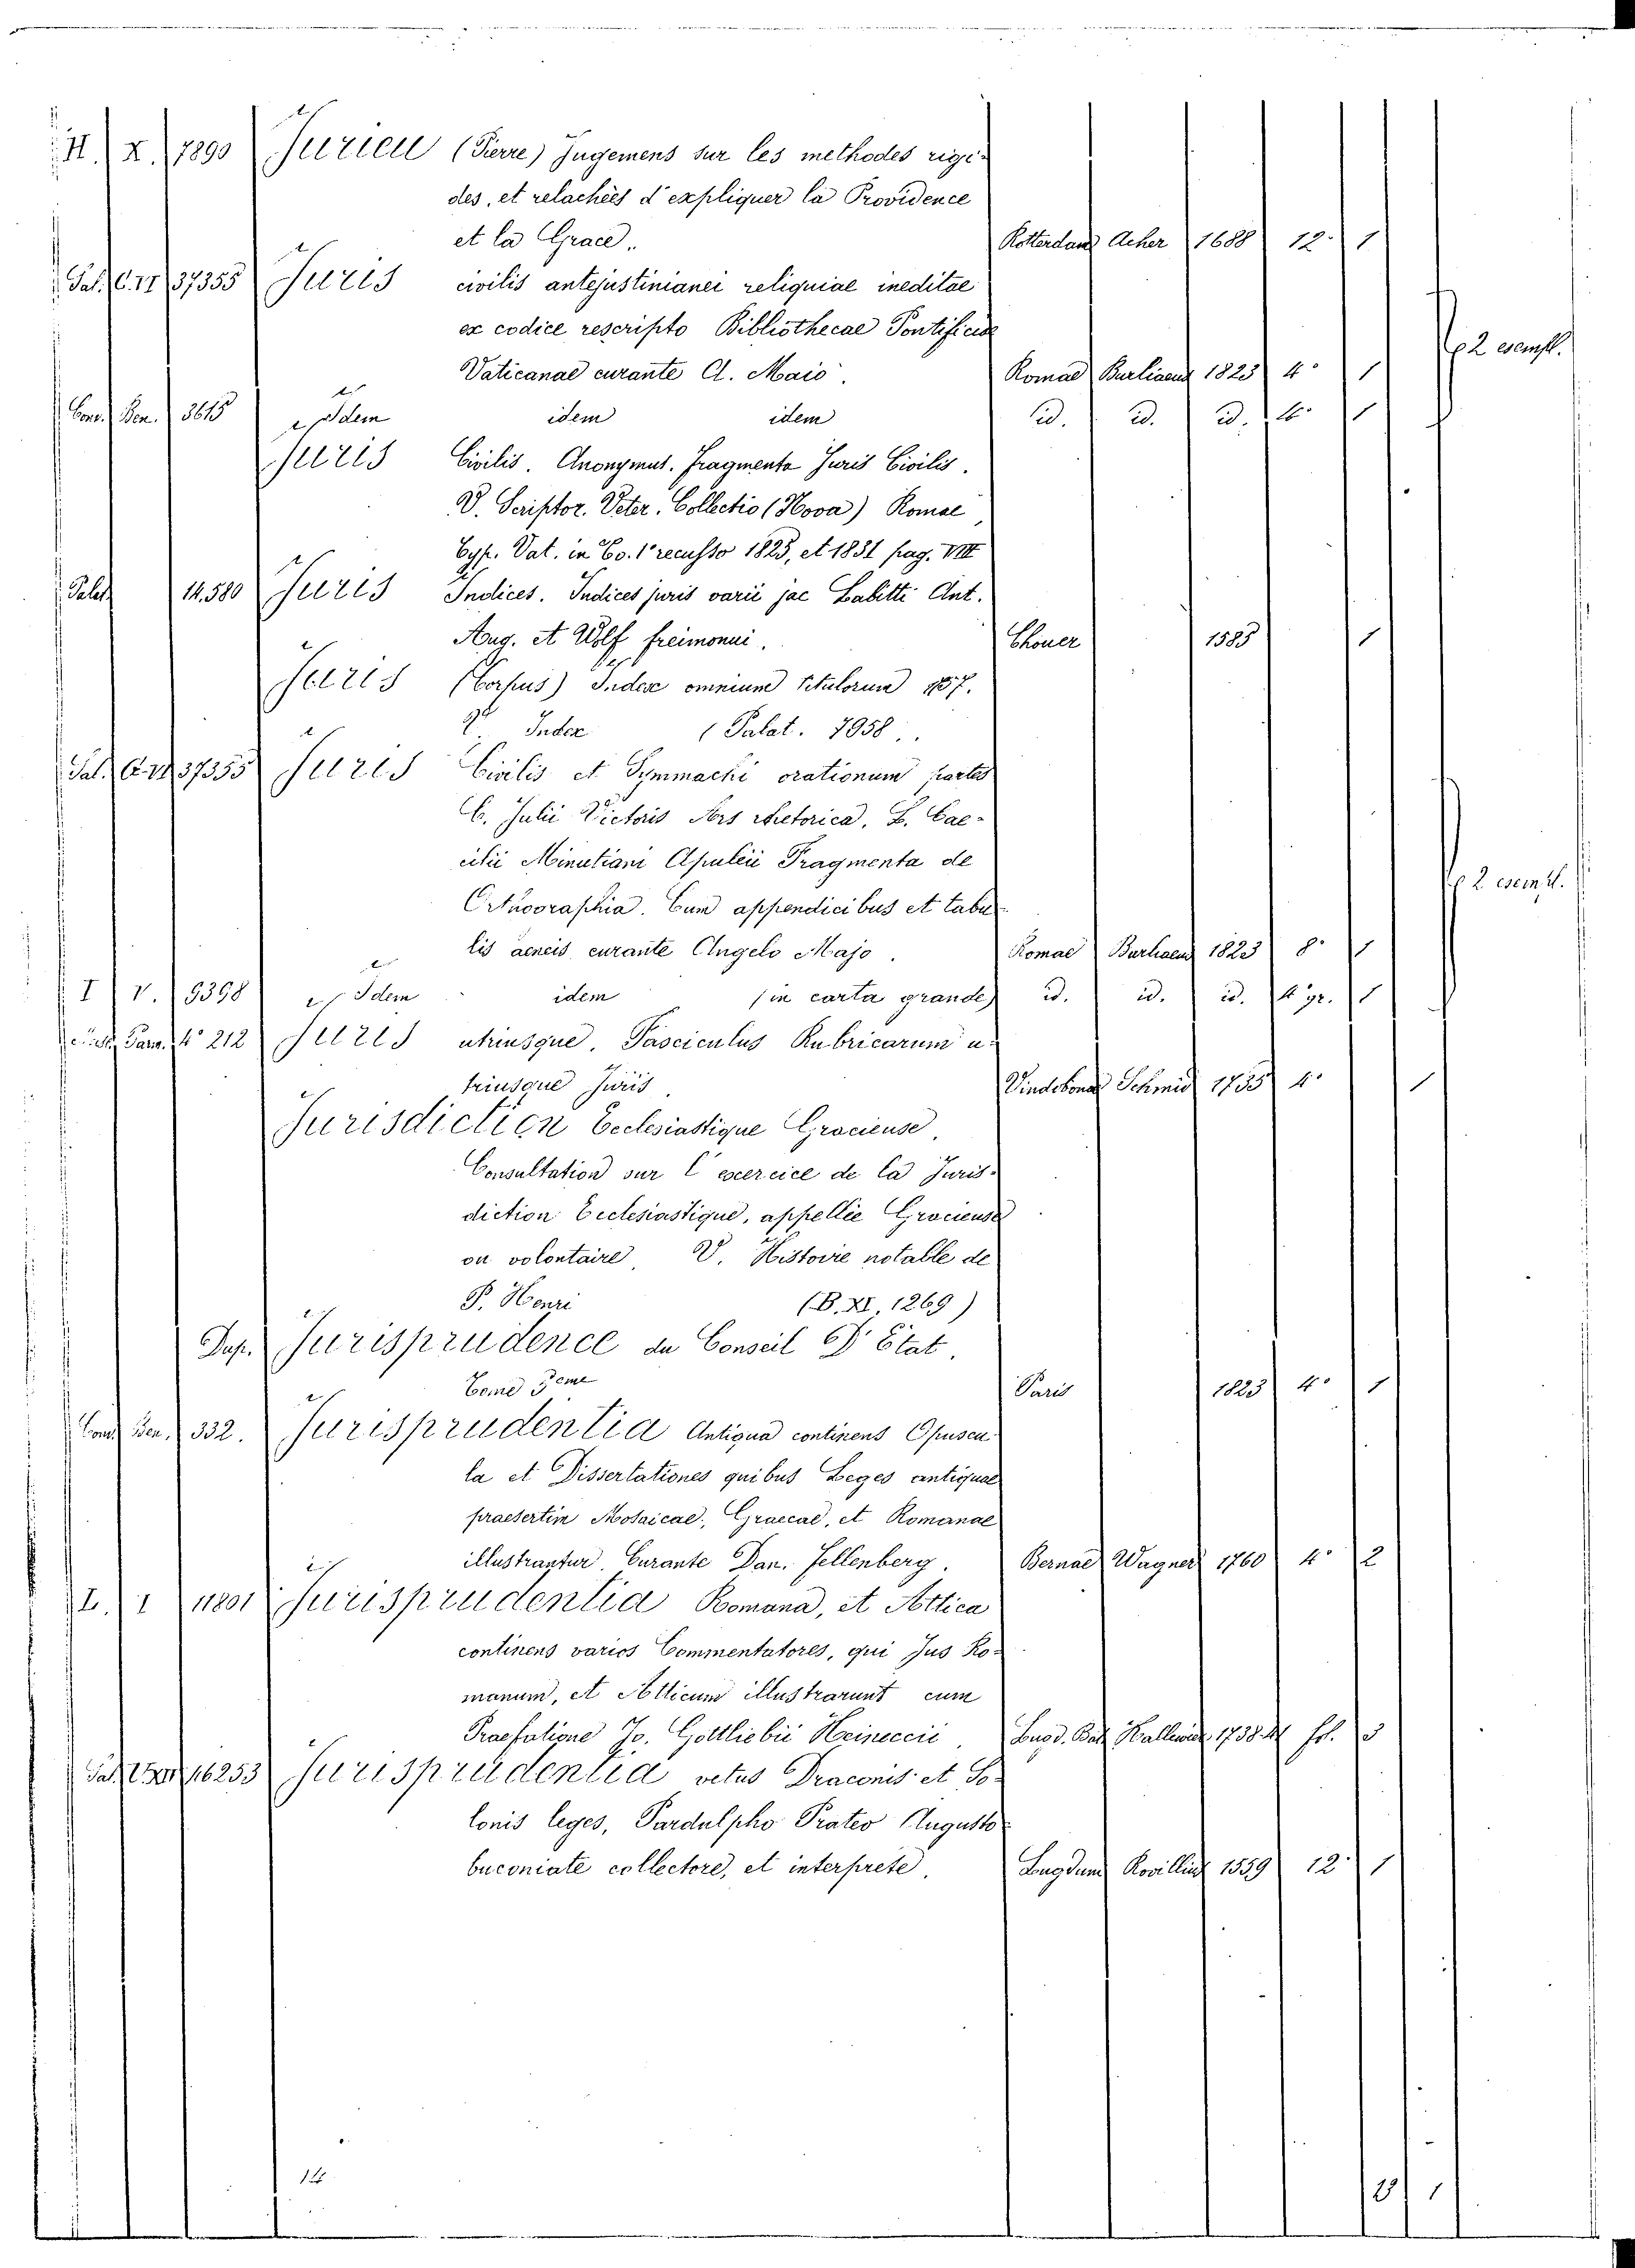 II. X. 7890 Jurieu (Pierre) Jugemens sur les methodes rigi-
des, et relachées d'expliquer la Providence
et la Grace. Rotterdam Acher 1688 12. 1
Pal. C. II 37355 Juris civilis antejustinianei reliquiae ineditae
ex codice rescripto Bibliothecae Pontificiae
Vaticanae curante A. Maio. Romae Burliaeus 1823 4° 1 2 esempl.
Cons. Ben. 3615 Idem idem idem id. id. id. 4° 1
Juris Civilis. Anonymus. Fragmenta Juris Civilis.
V. Scriptor. Veter. Collectio (Nova) Romae
Typ. Vat. in Co. 1° recusso 1825, et 1831 pag. VIII
Palat. 14.580 Juris Indices. Indices juris varii jac Labitti Ant.
Aug. et Wolf freimonui. Chouer 1585 1
Juris (Corpus) Index omnium titulorum
V. Index (Palat. 7958.
Pal. C. II 37355 Juris Civilis et Symmachi orationum partes
C. Julii Victoris Ars rhetorica. L. Cae-
cilii Minutiani Apuleii Fragmenta de
Orthographia. Cum appendicibus et tabu-
lis aeneis curante Angelo Majo. Romae Burliaeus 1823 8° 1 2 esempl.
I V. 9398 Idem idem (in carta grande) id. id. id. 4° gr. 1
Pam. 4° 212 Juris utriusque. Fasciculus Rubricarum u-
triusque Juris. Vindobonae Schmid 1735 4° 1
Jurisdiction Ecclesiastique Gracieuse.
Consultation sur l'exercice de la Juris-
diction Ecclesiastique, appellée Gracieuse
ou volontaire V. Histoire notable de
P. Henri (B. XI, 1269)
Dup. Jurisprudence du Conseil D'Etat.
Tome 5eme Paris 1823 4° 1
Cons. Ben. 332. Jurisprudentia Antiqua continens Opuscu-
la et Dissertationes quibus Leges antiquae
praesertim Mosaicae, Graecae, et Romanae
illustrantur. Curante Dan. Fellenberg. Bernae Wagner 1760 4° 2
L. I 11801 Jurisprudentia Romana, et Attica
continens varios Commentatores, qui Jus Ro-
manum, et Atticum illustrarunt cum
Praefatione Jo. Gottliebii Heineccii. Lugd. Bat. Kallewier 1738.41 fol. 3
Pal. 16253 Jurisprudentia vetus Draconis et So-
lonis leges, Pardulpho Prateo Augusto-
buconiate collectore, et interprete. Lugduni Rovillius 1559 12. 1
14
13 1